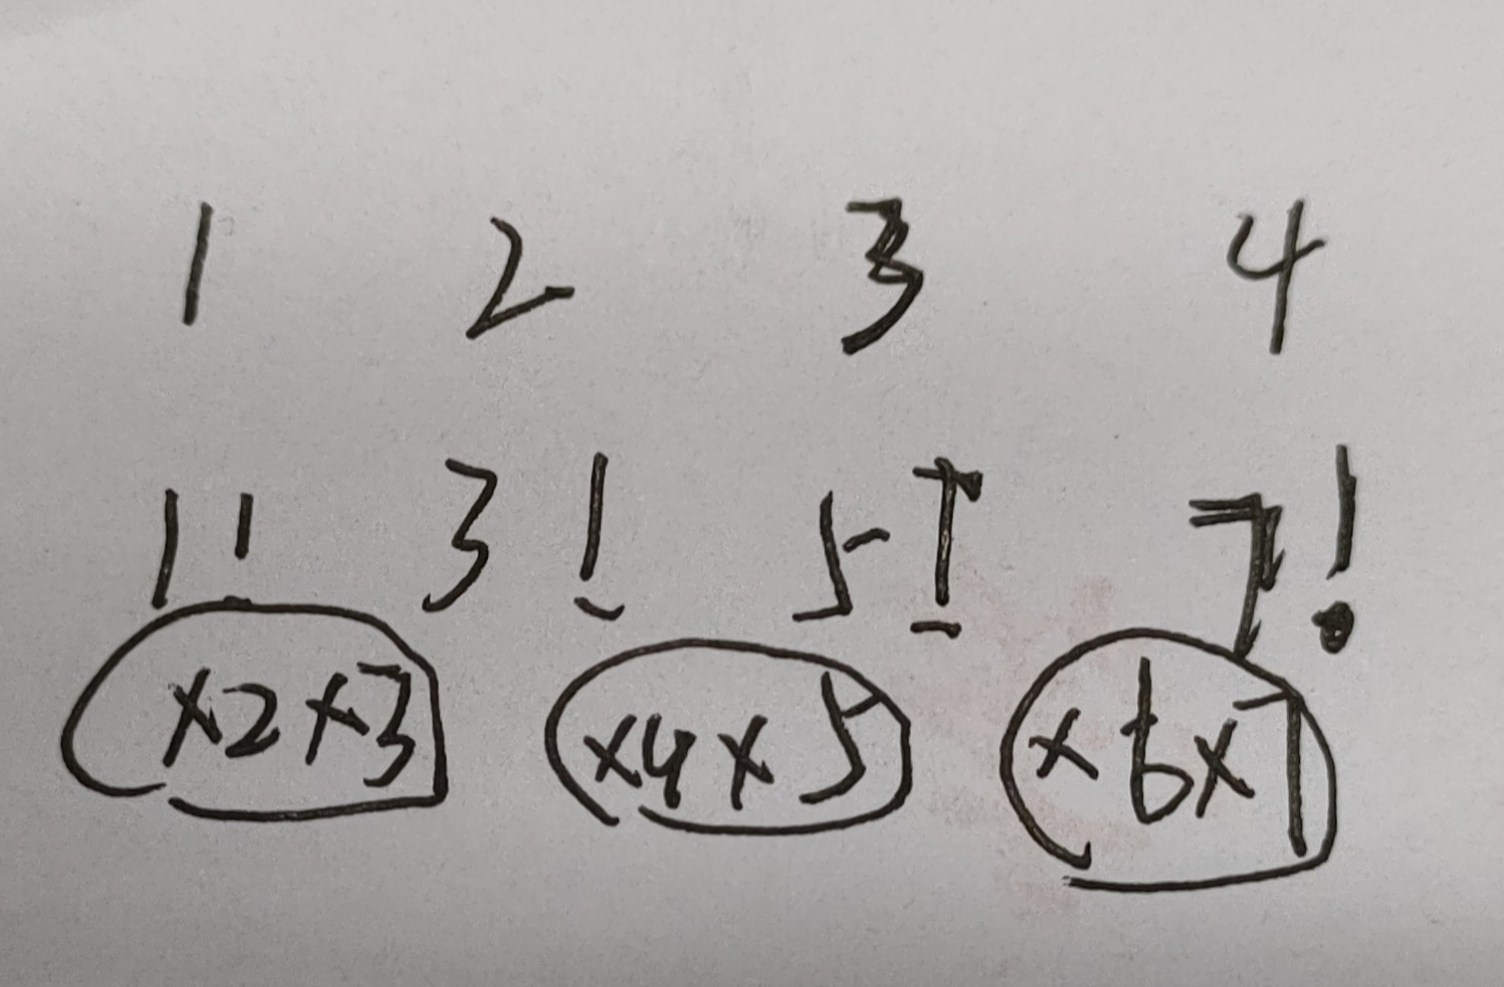 1 2 3 4
1! 3! 5! 7!
×2×3 ×4×5 ×6×7